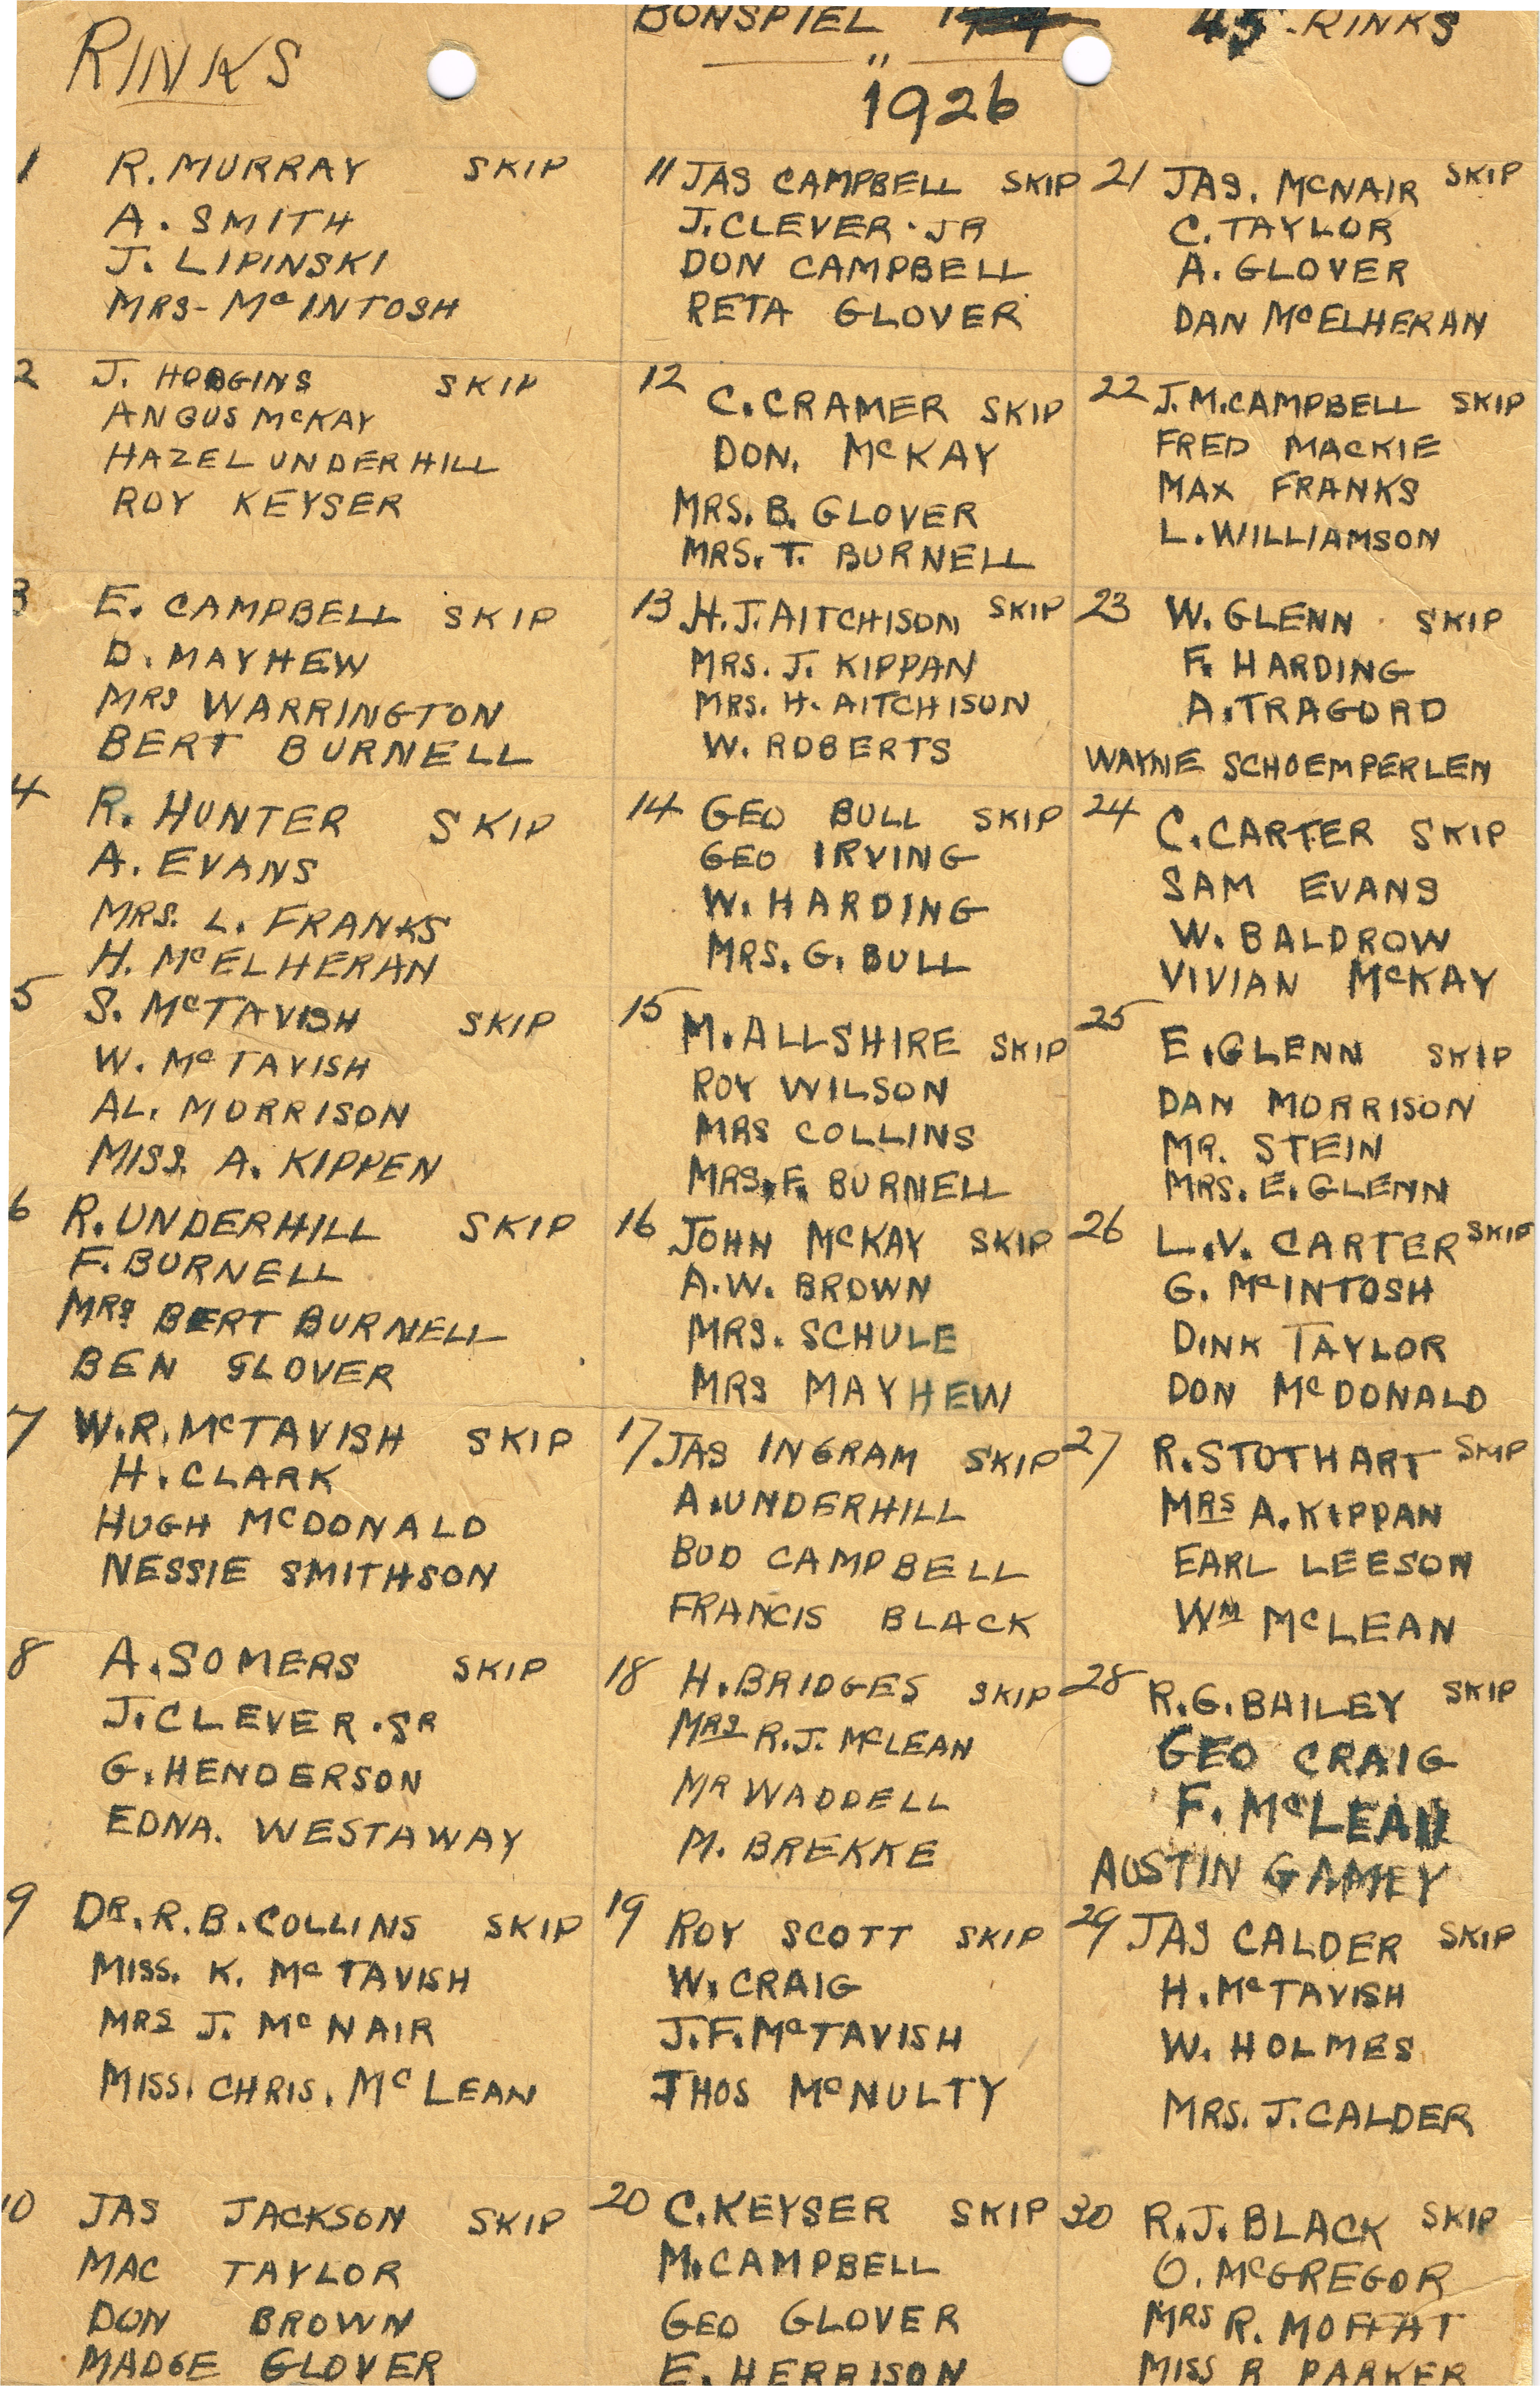 RINKS
BONSPIEL
45 - RINKS
"
1926
1 R. MURRAY SKIP
A. SMITH
J. LIPINSKI
MRS- McINTOSH
2 J. HODGINS SKIP
ANGUS McKAY
HAZEL UNDERHILL
ROY KEYSER
3 E. CAMPBELL SKIP
D. MAYHEW
MRS WARRINGTON
BERT BURNELL
4 R. HUNTER SKIP
A. EVANS
MRS. L. FRANKS
H. McELHERAN
5 S. McTAVISH SKIP
W. McTAVISH
AL. MORRISON
MISS. A. KIPPEN
6 R. UNDERHILL SKIP
F. BURNELL
MRS BERT BURNELL
BEN GLOVER
7 W.R. McTAVISH SKIP
H. CLARK
HUGH McDONALD
NESSIE SMITHSON
8 A. SOMERS SKIP
J. CLEVER. SR
G. HENDERSON
EDNA. WESTAWAY
9 DR. R. B. COLLINS SKIP
MISS. K. McTAVISH
MRS J. McNAIR
MISS. CHRIS. McLEAN
10 JAS JACKSON SKIP
MAC TAYLOR
DON BROWN
MADGE GLOVER
11 JAS CAMPBELL SKIP
J. CLEVER. JR
DON CAMPBELL
RETA GLOVER
12 C. CRAMER SKIP
DON. McKAY
MRS. B. GLOVER
MRS. T. BURNELL
13 H. J. AITCHISON SKIP
MRS. J. KIPPAN
MRS. H. AITCHISON
W. ROBERTS
14 GEO BULL SKIP
GEO IRVING
W. HARDING
MRS. G. BULL
15 M. ALLSHIRE SKIP
ROY WILSON
MRS COLLINS
MRS. F. BURNELL
16 JOHN McKAY SKIP
A.W. BROWN
MRS. SCHULE
MRS MAYHEW
17 JAS INGRAM SKIP
A. UNDERHILL
BUD CAMPBELL
FRANCIS BLACK
18 H. BRIDGES SKIP
MRS R.J. McLEAN
MR WADDELL
M. BREKKE
19 ROY SCOTT SKIP
W. CRAIG
J.F. McTAVISH
THOS McNULTY
20 C. KEYSER SKIP
M. CAMPBELL
GEO GLOVER
E. HERRISON
21 JAS. McNAIR SKIP
C. TAYLOR
A. GLOVER
DAN McELHERAN
22 J. M. CAMPBELL SKIP
FRED MACKIE
MAX FRANKS
L. WILLIAMSON
23 W. GLENN SKIP
F. HARDING
A. TRAGORD
WAYNE SCHOEMPERLEN
24 C. CARTER SKIP
SAM EVANS
W. BALDROW
VIVIAN McKAY
25 E. GLENN SKIP
DAN MORRISON
MR. STEIN
MRS. E. GLENN
26 L.V. CARTER SKIP
G. McINTOSH
DINK TAYLOR
DON McDONALD
27 R. STOTHART SKIP
MRS A. KIPPAN
EARL LEESON
WM McLEAN
28 R.G. BAILEY SKIP
GEO CRAIG
F. McLEAN
AUSTIN GAMEY
29 JAS CALDER SKIP
H. McTAVISH
W. HOLMES
MRS. J. CALDER
30 R.J. BLACK SKIP
O. McGREGOR
MRS R. MOFFAT
MISS R PARKER